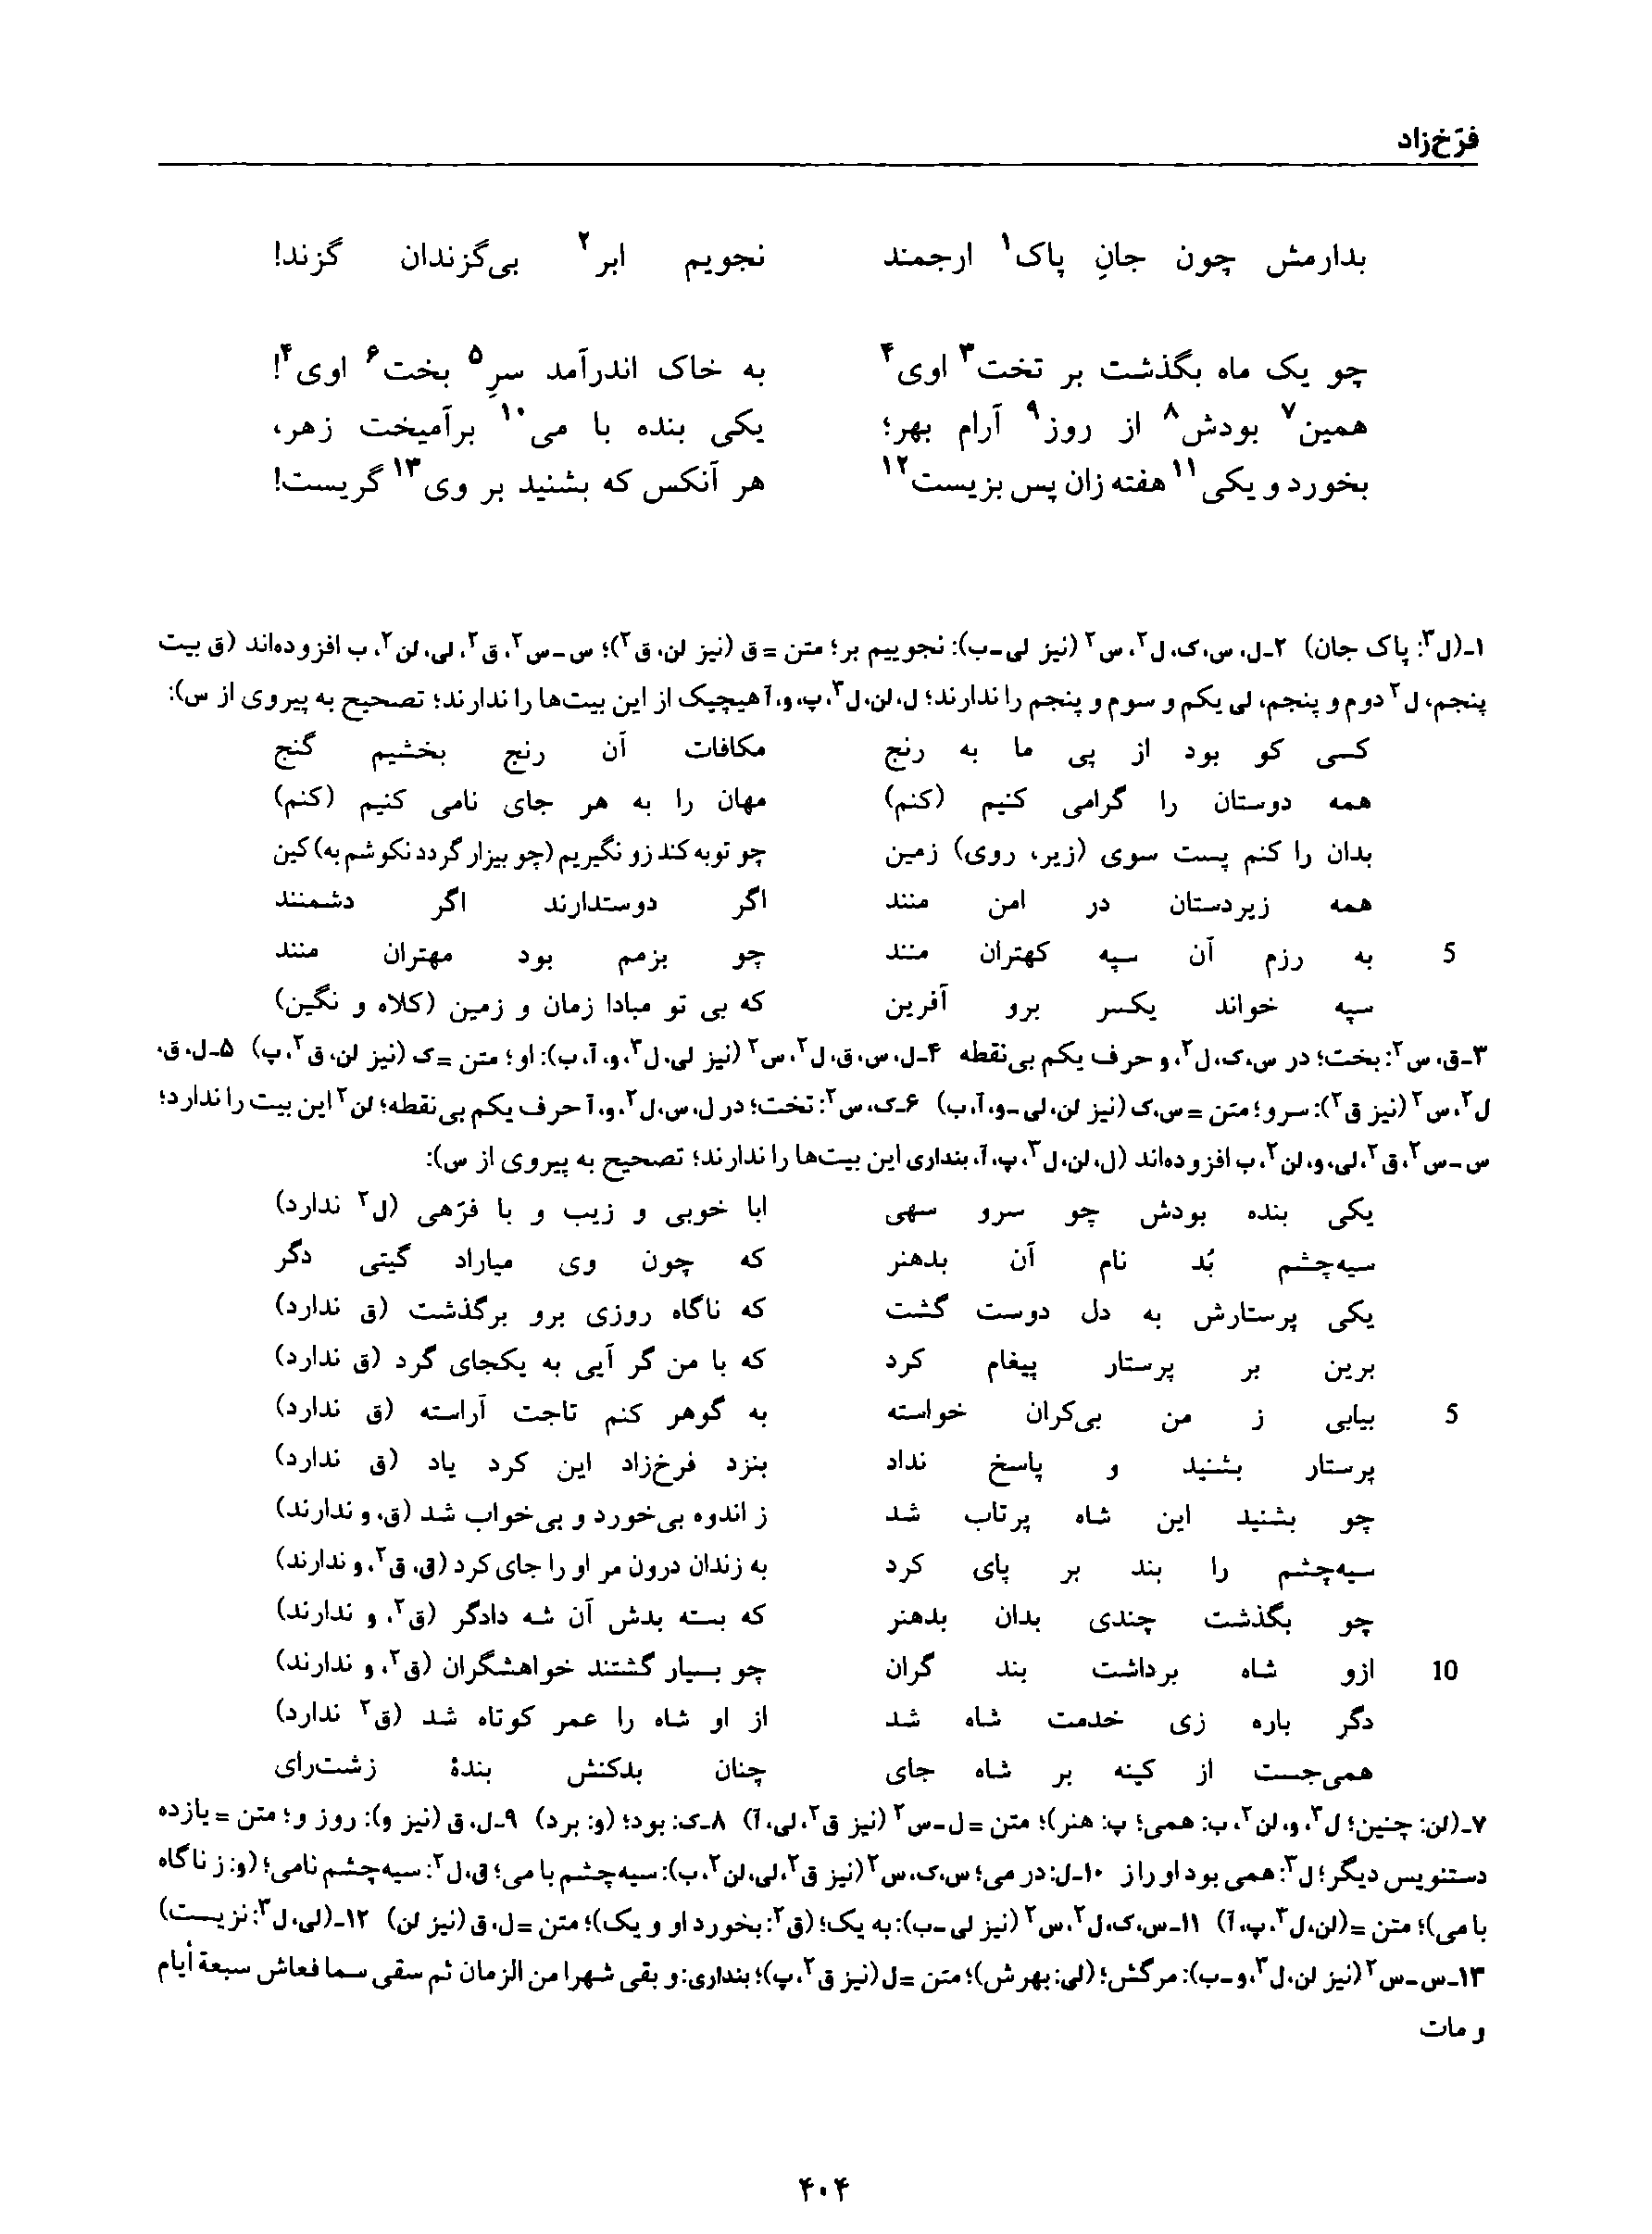 فرّخ‌زاد
بدارمش چون جانِ پاک۱ ارجمند نجویم ابر۲ بی‌گزندان گزند!
چو یک ماه بگذشت بر تخت۳ اوی۴ به خاک اندرآمد سرِ۵ بخت۶ اوی۴!
همین۷ بودش۸ از روز۹ آرام بهر؛ یکی بنده با می۱۰ برآمیخت زهر،
بخورد و یکی۱۱ هفته زان پس بزیست۱۲ هر آنکس که بشنید بر وی۱۳ گریست!
۱-(ل۳: پاک جان) ۲-ل، س، ک، ل۲، س۲ (نیز لی-ب): نجوییم بر؛ متن = ق (نیز لن، ق۲)؛ س-س۲، ق۲، لی، لن۲، ب افزوده‌اند (ق بیت
پنجم، ل۲ دوم و پنجم، لی یکم و سوم و پنجم را ندارند؛ ل، لن، ل۳، پ، و، آ هیچیک از این بیت‌ها را ندارند؛ تصحیح به پیروی از س):
کسی کو بود از پی ما به رنج مکافات آن رنج بخشیم گنج
همه دوستان را گرامی کنیم (کنم) مهان را به هر جای نامی کنیم (کنم)
بدان را کنم پست سوی (زیر، روی) زمین چو توبه کند زو نگیریم (چو بیزار گردد نکوشم به) کین
همه زیردستان در امن منند اگر دوستدارند اگر دشمنند
5 به رزم آن سپه کهتران منند چو بزمم بود مهتران منند
سپه خواند یکسر برو آفرین که بی تو مبادا زمان و زمین (کلاه و نگین)
۳-ق، س۲: بخت؛ در س، ک، ل۲، و حرف یکم بی‌نقطه ۴-ل، س، ق، ل۲، س۲ (نیز لی، ل۳، و، آ، ب): او؛ متن = ک (نیز لن، ق۲، پ) ۵-ل، ق،
ل۲، س۲ (نیز ق۲): سرو؛ متن = س، ک (نیز لن، لی-و، آ، ب) ۶-ک، س۲: تخت؛ در ل، س، ل۲، و، آ حرف یکم بی‌نقطه؛ لن۲ این بیت را ندارد؛
س-س۲، ق۲، لی، و، لن۲، ب افزوده‌اند (ل، لن، ل۳، پ، آ، بنداری این بیت‌ها را ندارند؛ تصحیح به پیروی از س):
یکی بنده بودش چو سرو سهی ابا خوبی و زیب و با فرّهی (ل۲ ندارد)
سیه‌چشم بُد نام آن بدهنر که چون وی میاراد گیتی دگر
یکی پرستارش به دل دوست گشت که ناگاه روزی برو برگذشت (ق ندارد)
برین بر پرستار پیغام کرد که با من گر آیی به یکجای گرد (ق ندارد)
5 بیابی ز من بی‌کران خواسته به گوهر کنم تاجت آراسته (ق ندارد)
پرستار بشنید و پاسخ نداد بنزد فرخ‌زاد این کرد یاد (ق ندارد)
چو بشنید این شاه پرتاب شد ز اندوه بی‌خورد و بی‌خواب شد (ق، و ندارند)
سیه‌چشم را بند بر پای کرد به زندان درون مر او را جای کرد (ق، ق۲، و ندارند)
چو بگذشت چندی بدان بدهنر که بسته بدش آن شه دادگر (ق۲، و ندارند)
10 ازو شاه برداشت بند گران چو بسیار گشتند خواهشگران (ق۲، و ندارند)
دگر باره زی خدمت شاه شد از او شاه را عمر کوتاه شد (ق۲ ندارد)
همی‌جست از کینه بر شاه جای چنان بدکنش بندهٔ زشت‌رای
۷-(لن: چنین؛ ل۳، و، لن۲، ب: همی؛ پ: هنر)؛ متن = ل-س۲ (نیز ق۲، لی، آ) ۸-ک: بود؛ (و: برد) ۹-ل، ق (نیز و): روز و؛ متن = یازده
دستنویس دیگر؛ ل۳: همی بود او را ز ۱۰-ل: در می؛ س، ک، س۲ (نیز ق۲، لی، لن۲، ب): سیه‌چشم با می؛ ق، ل۲: سیه‌چشم نامی؛ (و: ز ناگاه
با می)؛ متن = (لن، ل۳، پ، آ) ۱۱-س، ک، ل۲، س۲ (نیز لی-ب): به یک؛ (ق۲: بخورد او و یک)؛ متن = ل، ق (نیز لن) ۱۲-(لی، ل۳: نزیست)
۱۳-س-س۲ (نیز لن، ل۳، و-ب): مرگش؛ (لی: بهرش)؛ متن = ل (نیز ق۲، پ)؛ بنداری: و بقی شهرا من الزمان ثم سقی سما فعاش سبعة أیام
و مات
۴۰۴